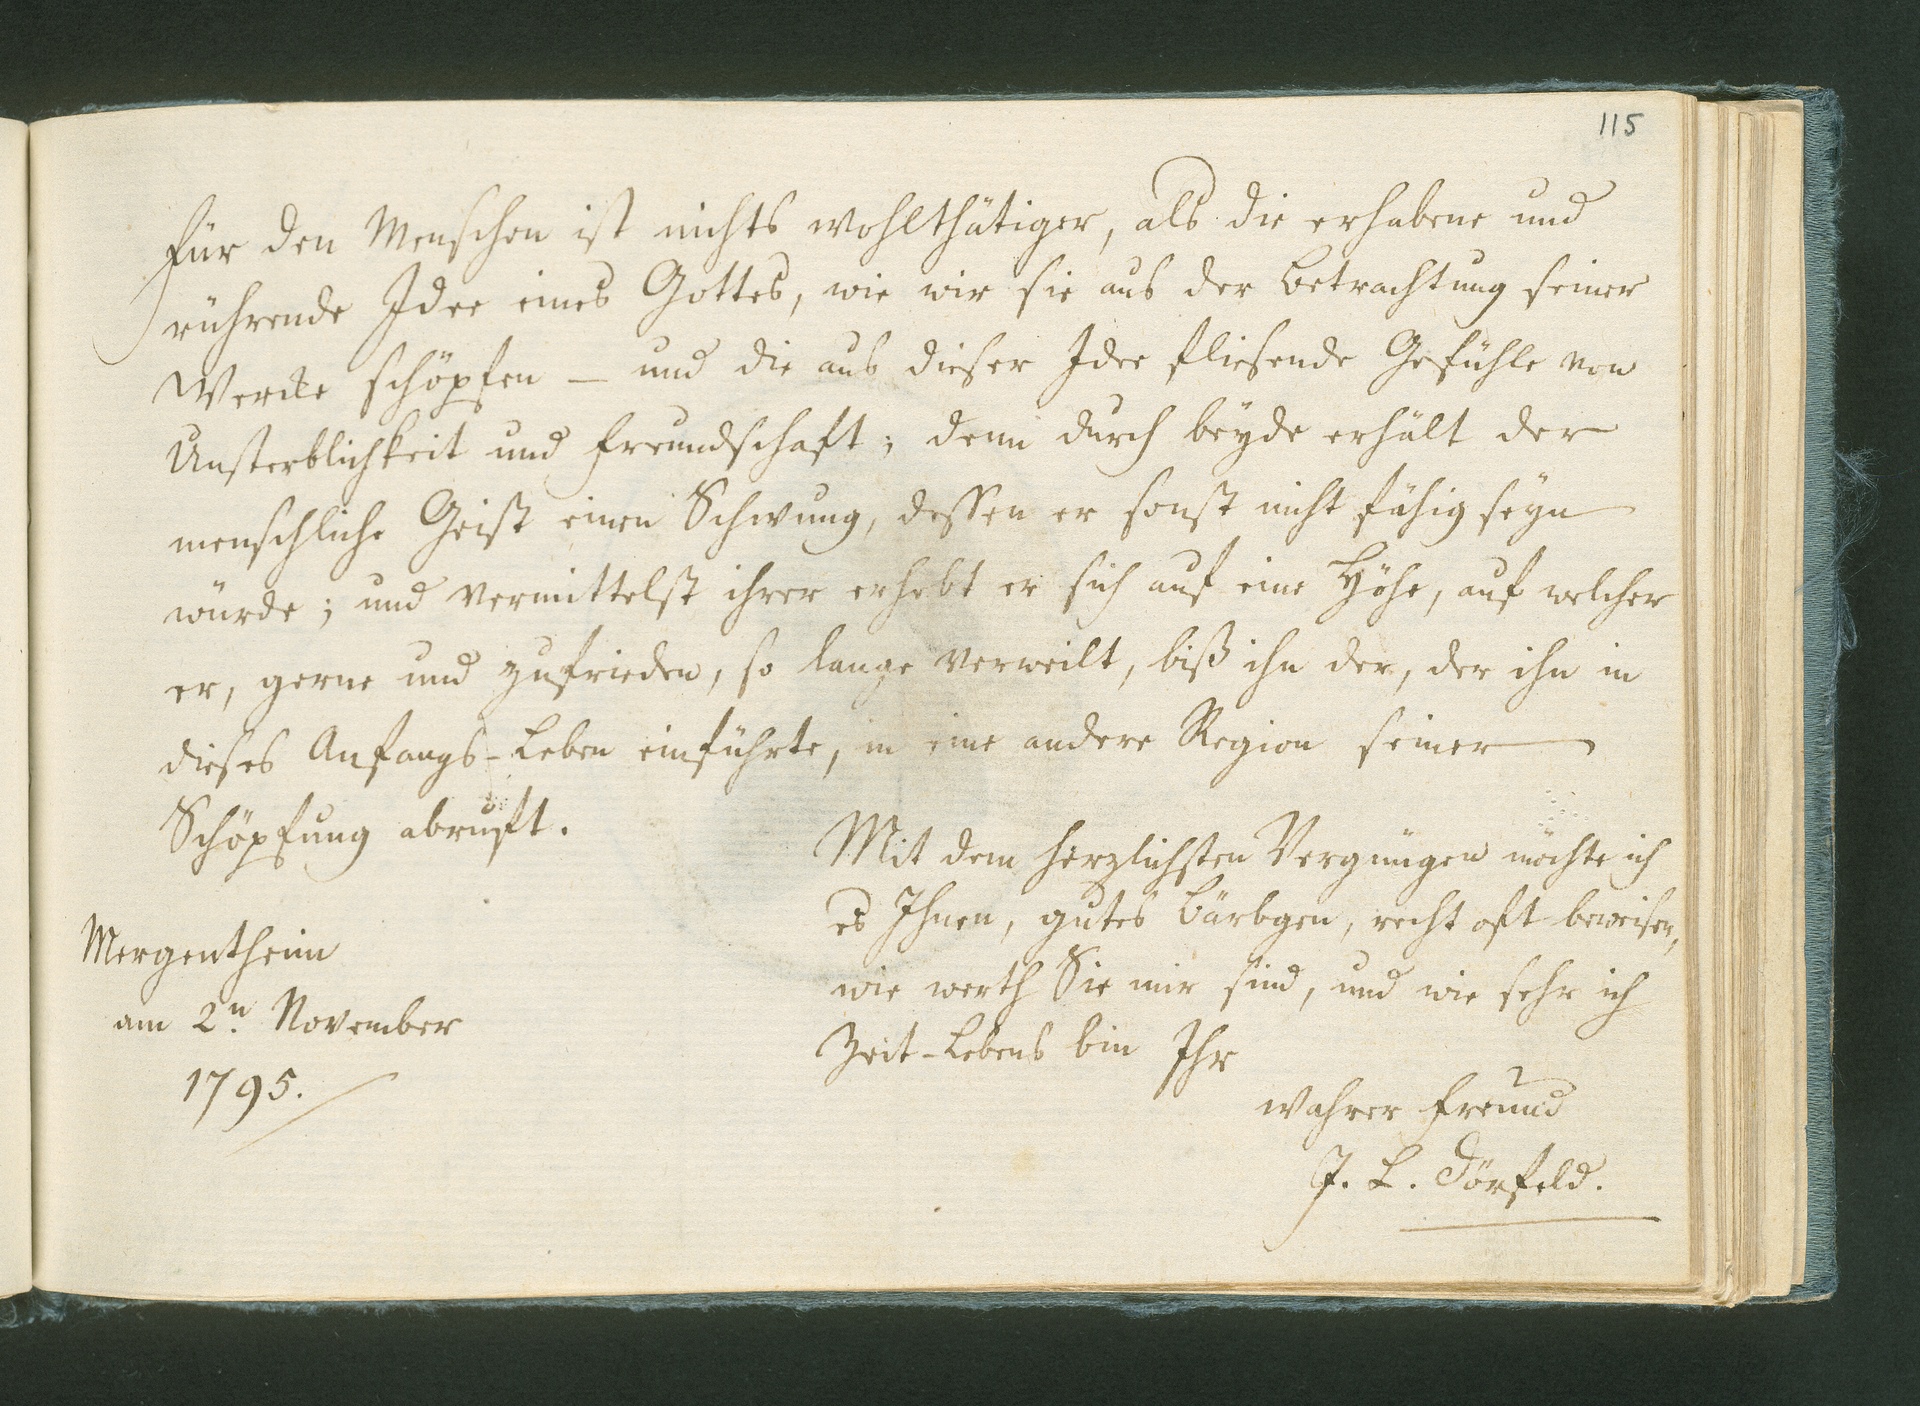 115
Für den Menschen ist nichts wohlthätiger, als die erhabene und
rührende Idee eines Gottes, wie wir sie aus der Betrachtung seiner
Wercke schöpfen – und die aus dieser Idee fliesende Gefühle von
Unsterblichkeit und Freundschaft; denn durch beyde erhält der
menschliche Geist einen Schwung, dessen er sonst nicht fähig seyn
würde; und vermittelst ihrer erhebt er sich auf eine Höhe, auf welcher
er, gerne und zufrieden, so lange verweilt, biß ihn der, der ihn in
dieses Anfangs-Leben einführte, in eine andere Region seiner
Schöpfung abruft.
Mergentheim
am 2n November
1795.
Mit dem herzlichsten Vergnügen möchte ich
es Ihnen, gutes Bärbgen, recht oft beweisen,
wie werth Sie mir sind, und wie sehr ich
Zeit-Lebens bin Ihr
wahrer Freund
J. L. Dörfeld.